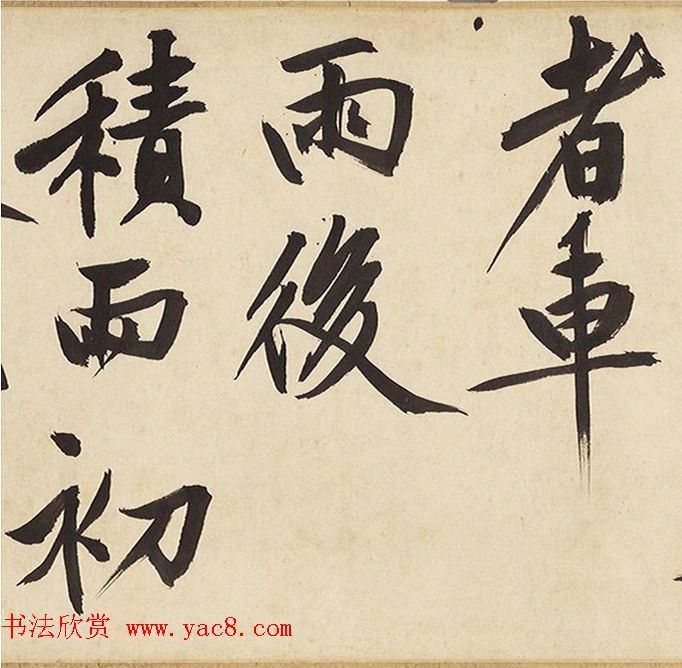 者車
雨後
積雨初
书法欣赏 www.yac8.com